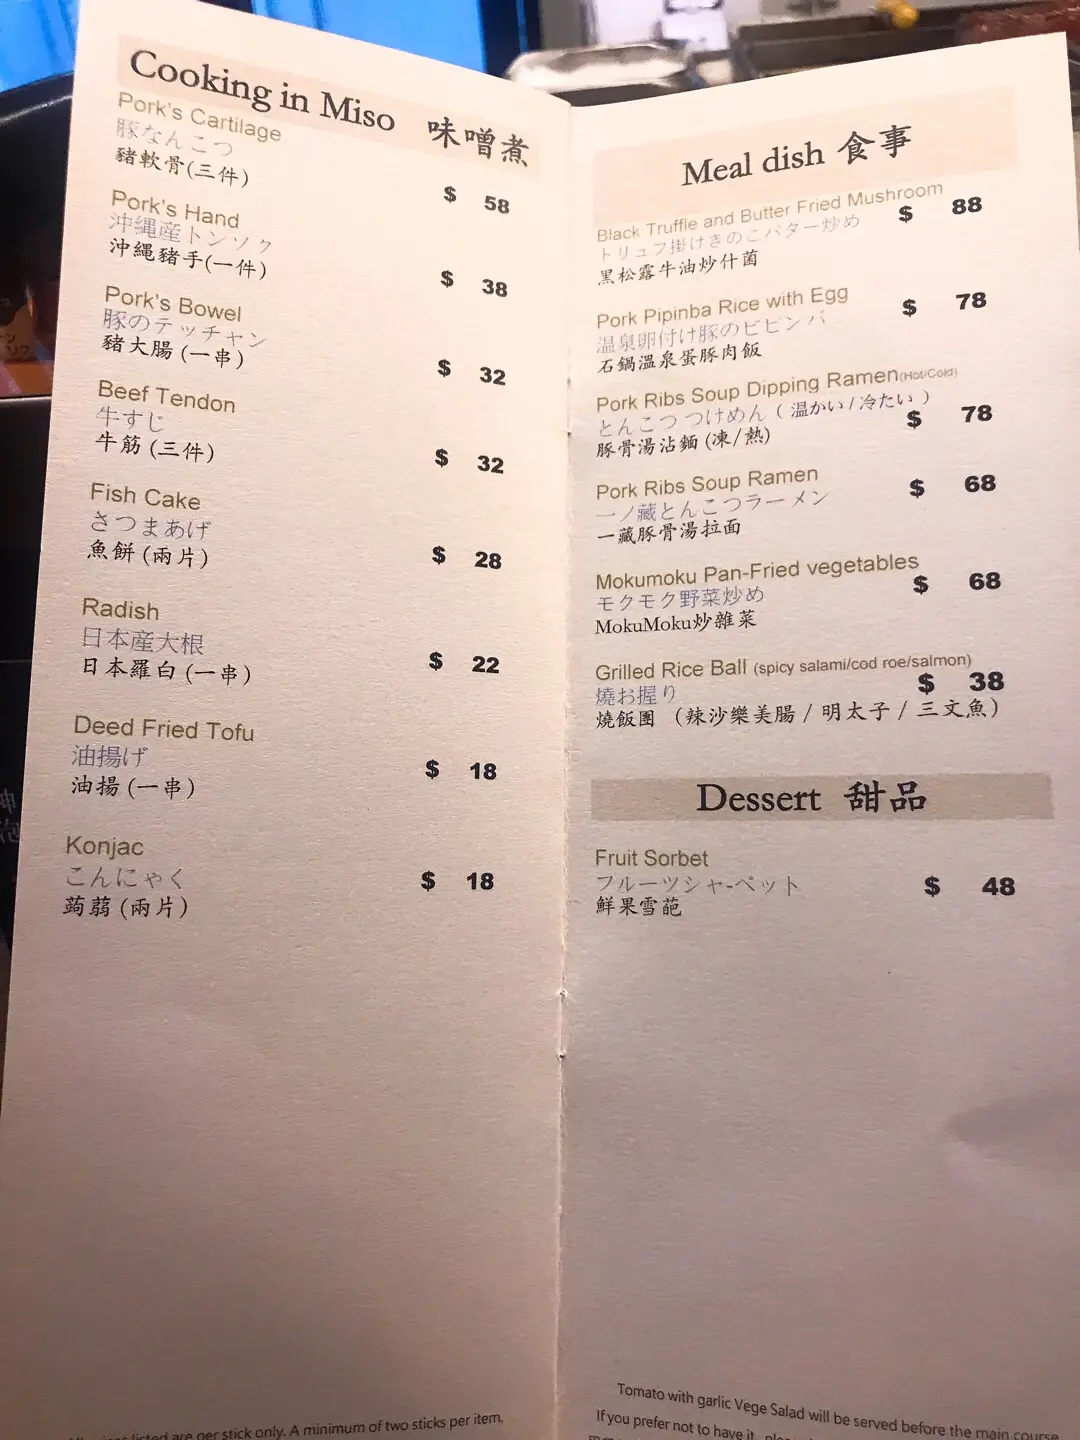 Cooking in Miso 味噌煮
Pork's Cartilage
豚なんこつ
豬軟骨(三件)
$ 58
Pork's Hand
沖縄産トンソク
沖繩豬手(一件)
$ 38
Pork's Bowel
豚のテッチャン
豬大腸(一串)
$ 32
Beef Tendon
牛すじ
牛筋(三件)
$ 32
Fish Cake
さつまあげ
魚餅(兩片)
$ 28
Radish
日本産大根
日本羅白(一串)
$ 22
Deed Fried Tofu
油揚げ
油揚(一串)
$ 18
Konjac
こんにゃく
蒟蒻(兩片)
$ 18
listed are per stick only. A minimum of two sticks per item,
Meal dish 食事
Black Truffle and Butter Fried Mushroom
トリュフ掛けきのこバター炒め
黑松露牛油炒什菌
$ 88
Pork Pipinba Rice with Egg
温泉卵付け豚のビビンバ
石鍋溫泉蛋豚肉飯
$ 78
Pork Ribs Soup Dipping Ramen(Hot/Cold)
とんこつ つけめん ( 温かい / 冷たい )
豚骨湯沾麵(凍/熱)
$ 78
Pork Ribs Soup Ramen
一ノ藏とんこつラーメン
一藏豚骨湯拉面
$ 68
Mokumoku Pan-Fried vegetables
モクモク野菜炒め
MokuMoku炒雜菜
$ 68
Grilled Rice Ball (spicy salami/cod roe/salmon)
燒お握り
燒飯團 (辣沙樂美腸 / 明太子 / 三文魚)
$ 38
Dessert 甜品
Fruit Sorbet
フルーツシャーベット
鮮果雪葩
$ 48
Tomato with garlic Vege Salad will be served before the main course
If you prefer not to have it,